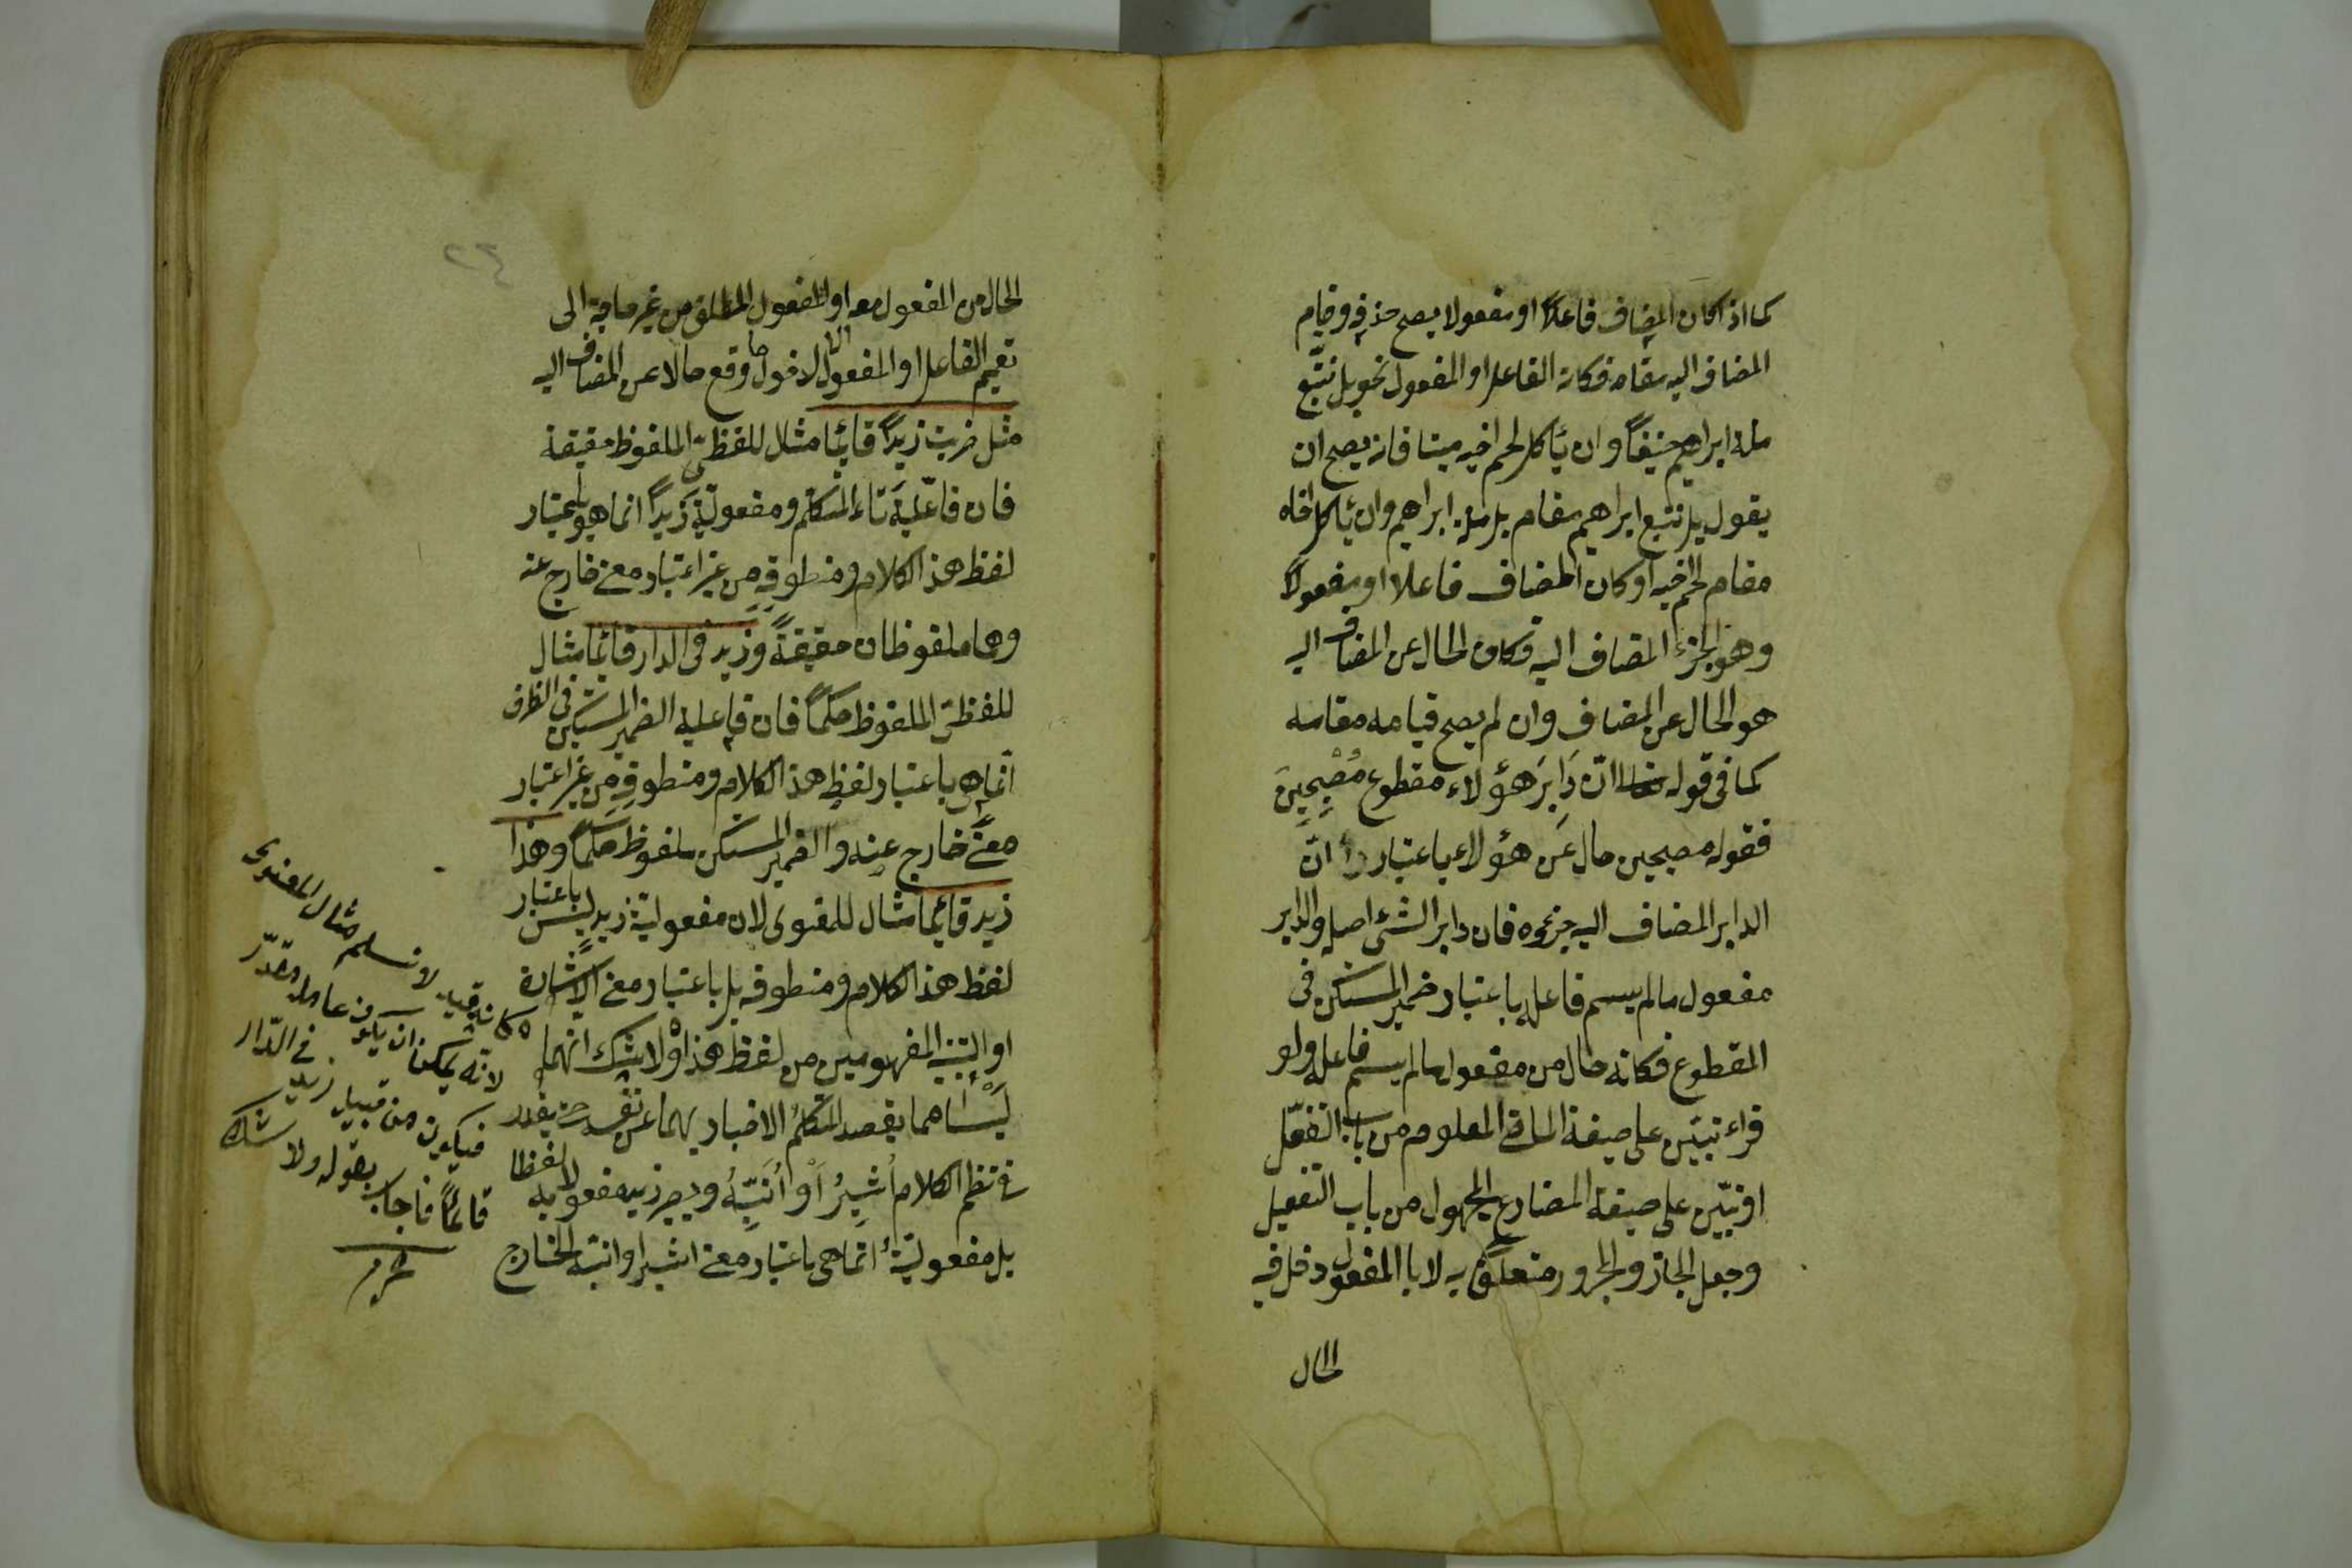 كما اذا كان المضاف فاعلاً او مفعولا يصح حذفه وقيام
المضاف اليه مقامه فكانه الفاعل او المفعول نحو بل نتّبع
ملة ابراهيم حنيفاً وان يأكل لحم اخيه ميتا فانه يصح ان
يقول بل نتبع ابراهيم مقام بل ملة ابراهيم وان يأكل اخاه
مقام لحم اخيه او كان المضاف فاعلا او مفعولاً
وهو الجزء المضاف اليه فكان الحال عن المضاف اليه
هو الحال عن المضاف وان لم يصح قيامه مقامه
كما فى قوله تعالى انّ دَابِرَ هؤلاء مقطوع مُصْبِحِينَ
فقوله مصبحين حال عَن هؤلاء باعتبار انّ
الدابر المضاف اليه جزءه فان دابر الشئ اصله والدابر
مفعول مالم يسم فاعله باعتبار ضمير المستكن فى
المقطوع فكانه حال من مفعول مالم يسم فاعله ولو
قراء تبيّن على صيغة الماضى المعلوم من باب التفعّل
او نبيّن على صيغة المضارع المجهول من باب التفعيل
وجعل الجار والمجرور متعلق به لا با المفعول دخل فيه
الحال
الحال من المفعول معه او المفعول المطلق من غير حاجة الى
تعميم الفاعل او المفعول الا لدخول ما وقع حالا عن المضاف اليه
مثل ضربت زيداً قائما مثال للفظىّ الملفوظ حقيقة
فان فاعليّة تاء المتكلم ومفعوليّة زيداً انما هو باعتبار
لفظ هذا الكلام ومنطوقه من غير اعتبار معنى خارج عنه
وهما ملفوظان حقيقةً وزيد فى الدار قائما مثال
للفظىّ الملفوظ حكماً فان فاعلية الضمير المستكن فى الظرف
انّما هى باعتبار لفظِ هذا الكلام ومنطوقهِ من غير اعتبار
معنًى خارج عنه والضمير المستكن ملفوظ حكماً وهذا
زيد قائما مثال للمعنوى لان مفعوليّة زيد ليس باعتبار
لفظ هذا الكلام ومنطوقه بل باعتبار معنى الاشارة
او التنبيه المفهومين من لفظ هذا ولا شك انهما
ليسا مما يقصد المتكلم الاخبار بهما عن نفسه حتى يقدر
فى نظم الكلام اُشيرُ اَوْ اُنَبِّهُ ويصير زيد مفعولا به لفظا
بل مفعوليّته انّما هى باعتبار معنى اشير او انبّه الخارج
كانه قيل لا نسلم مثال المعنوى
لانّه يمكن ان يكون عامله مقدّر
فيكون من قبيل زيد فى الدّار
قائماً فاجاب بقوله ولا شك
محرم